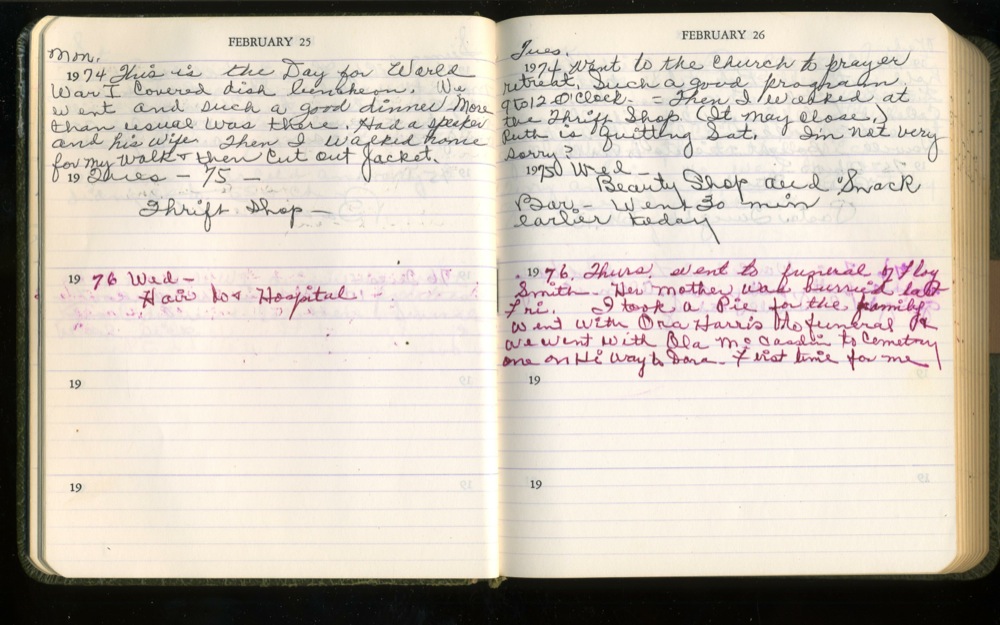 FEBRUARY 25
Mon.
1974 This is the Day for World
War I Covered dish luncheon. We
went and such a good dinner More
than usual was there. Had a speaker
and his wife. Then I walked home
for my walk & then Cut out Jacket.
19 Tues - 75 -
Thrift Shop -
19 76 Wed -
Hair do & Hospital
19
19
FEBRUARY 26
Tues.
1974 Went to the Church to prayer
retreat. Such a good program.
9 to 12 O'Clock. = Then I worked at
the Thrift Shop (It may close.)
Ruth is quitting Sat. I'm not very
sorry?
1975 Wed -
Beauty Shop and Snack
Bar - Went 30 min
earlier today
1976. Thurs. went to funeral of
Smith. Her mother was burried last
Fri. I took a Pie for the family.
Went with Ora Harris to funeral &
we went with Ola to Cemetery
one on Hi Way to Dora. First time for me
19
19